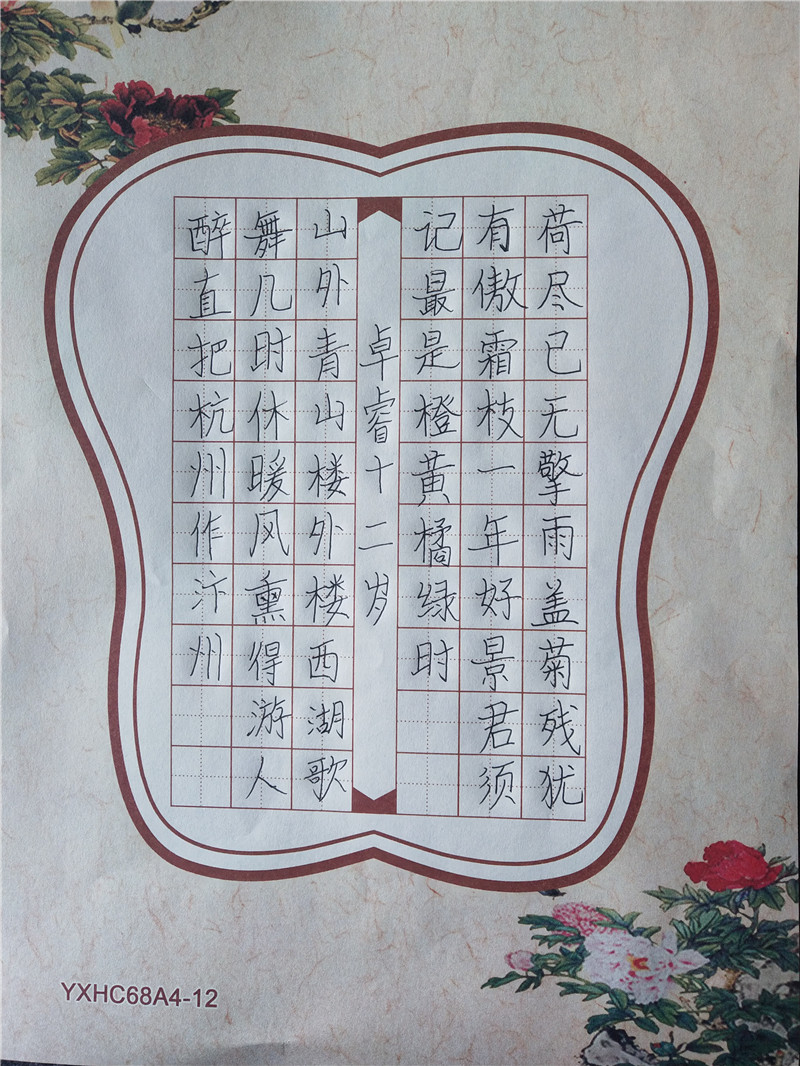 荷尽已无擎雨盖菊残犹
有傲霜枝一年好景君须
记最是橙黄橘绿时
卓睿十二岁
山外青山楼外楼西湖歌
舞几时休暖风熏得游人
醉直把杭州作汴州
YXHC68A4-12